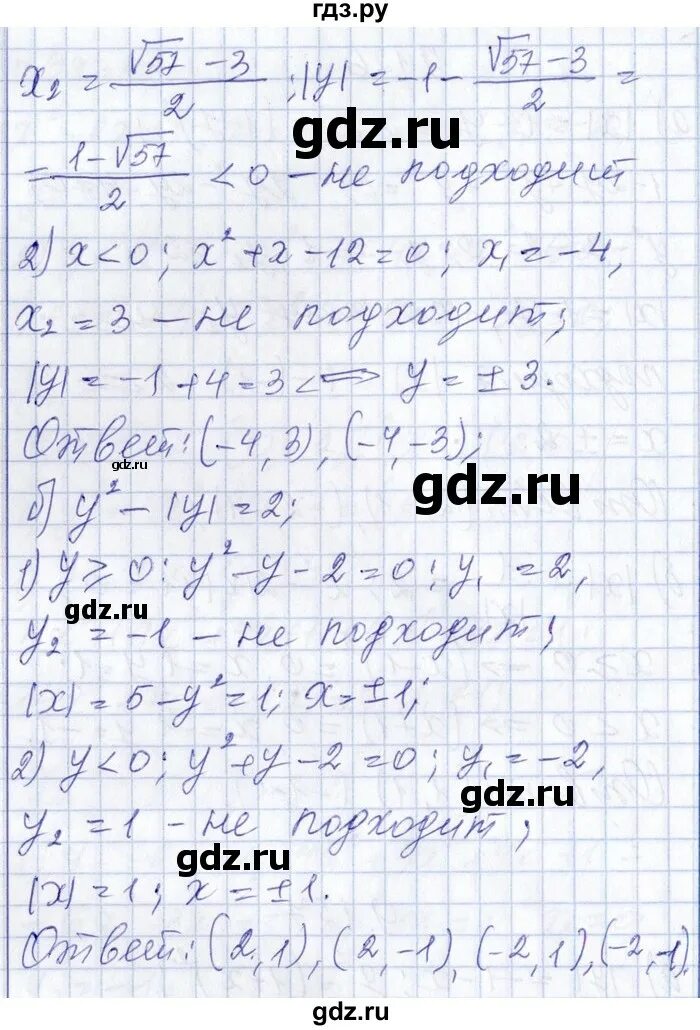 гдз.ру
x₂ = (√57 − 3)/2 ; |y| = −1 − (√57 − 3)/2 =
gdz.ru
= (1 − √57)/2 < 0 – не подходит
2) x < 0; x² + x − 12 = 0; x₁ = −4,
x₂ = 3 – не подходит;
|y| = −1 + 4 = 3 <=> y = ± 3.
Ответ: (−4, 3), (−4, −3);
gdz.ru
gdz.ru
б) y² − |y| = 2;
1) y ≥ 0: y² − y − 2 = 0; y₁ = 2,
gdz.ru
y₂ = −1 – не подходит;
|x| = 5 − y² = 1; x = ±1;
2) y < 0; y² + y − 2 = 0; y₁ = −2,
gdz.ru
y₂ = 1 – не подходит;
gdz.ru
|x| = 1; x = ±1.
Ответ: (2, 1), (2, −1), (−2, 1), (−2, −1).
gdz.ru